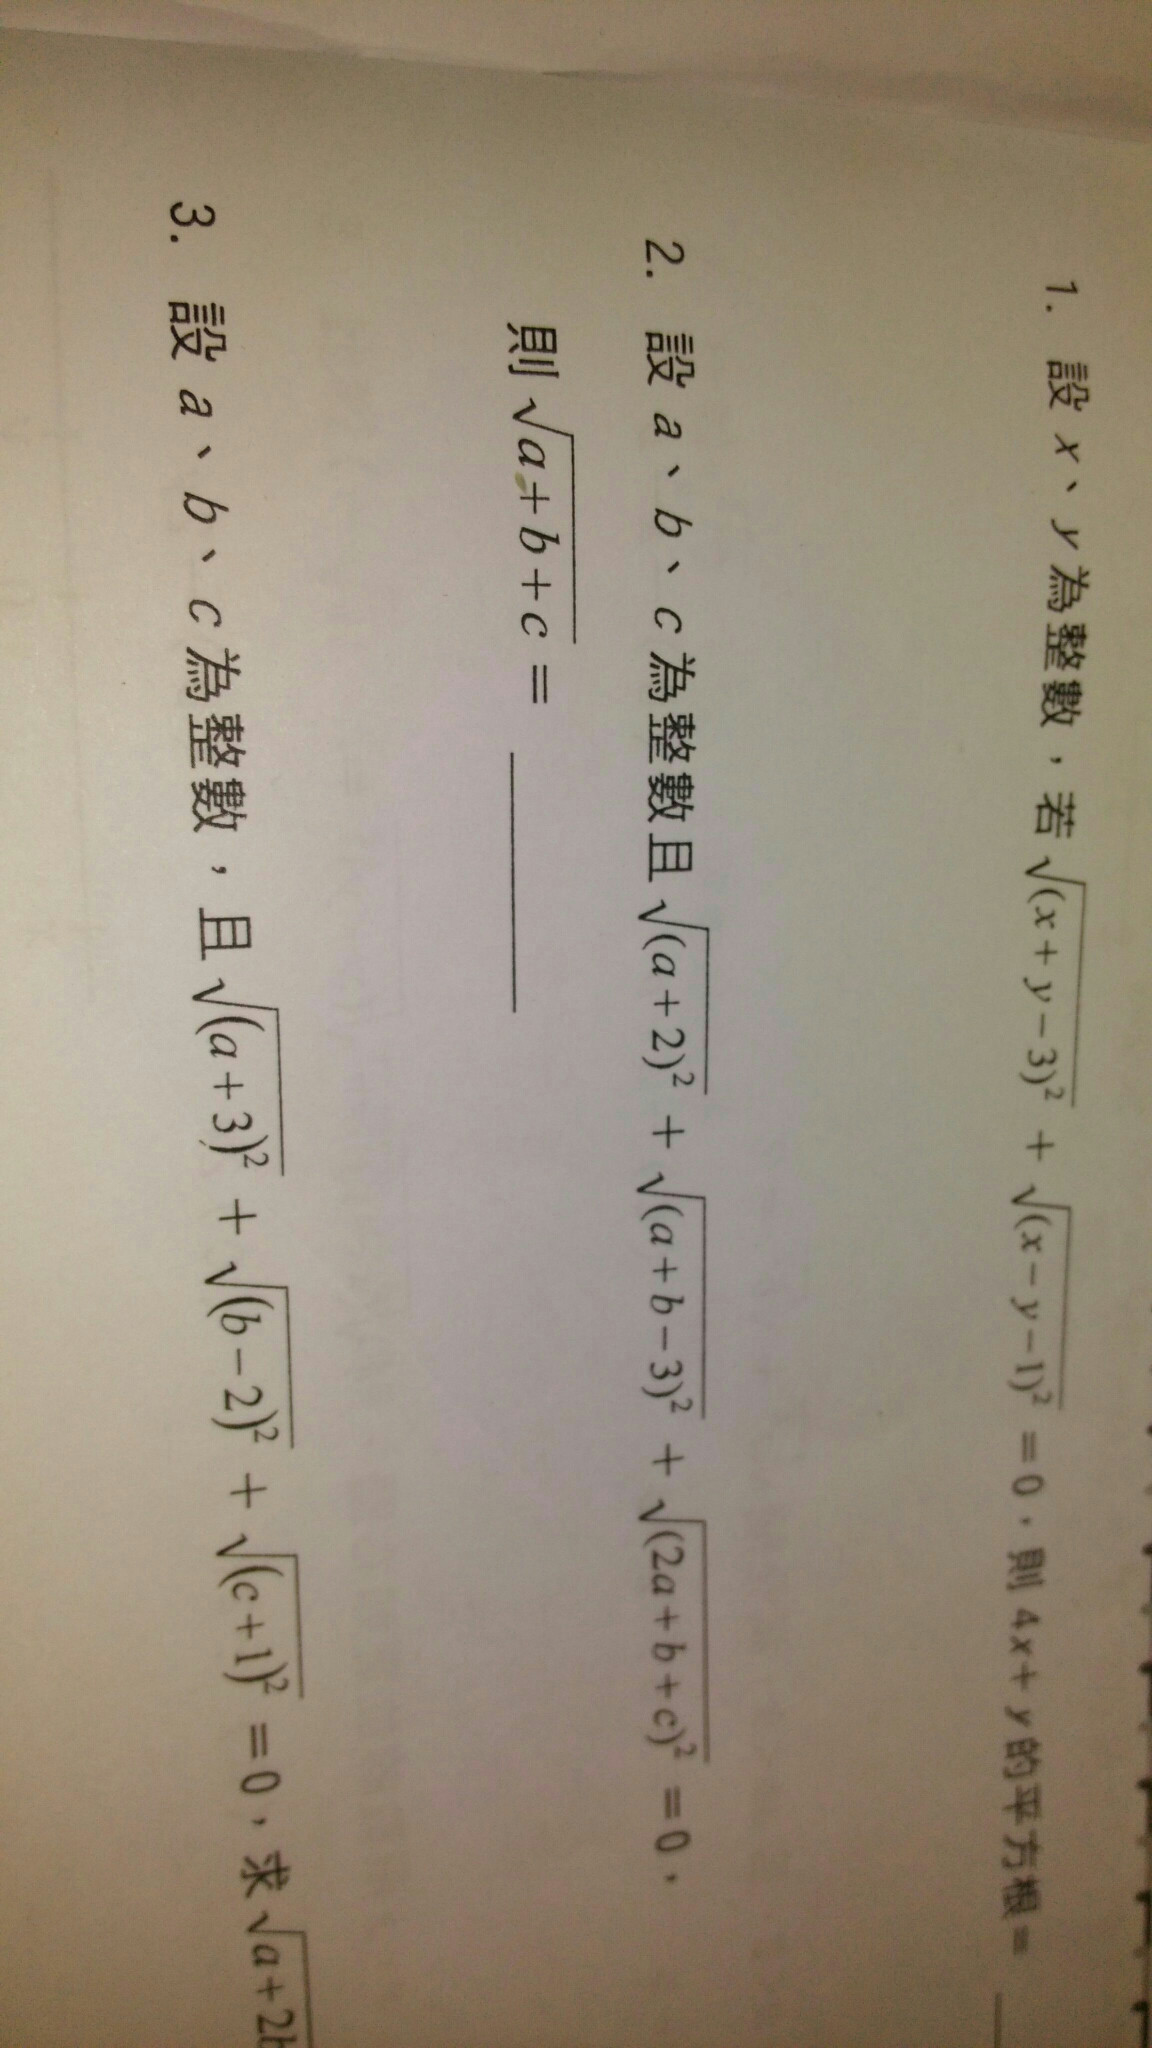 1. 設 x、y 為整數,若 √(x+y−3)² + √(x−y−1)² =0,則 4x+y 的平方根=
2. 設 a、b、c 為整數且 √(a+2)² + √(a+b−3)² + √(2a+b+c)² =0,
則 √a+b+c = ______
3. 設 a、b、c 為整數,且 √(a+3)² + √(b−2)² + √(c+1)² =0,求 √a+2b